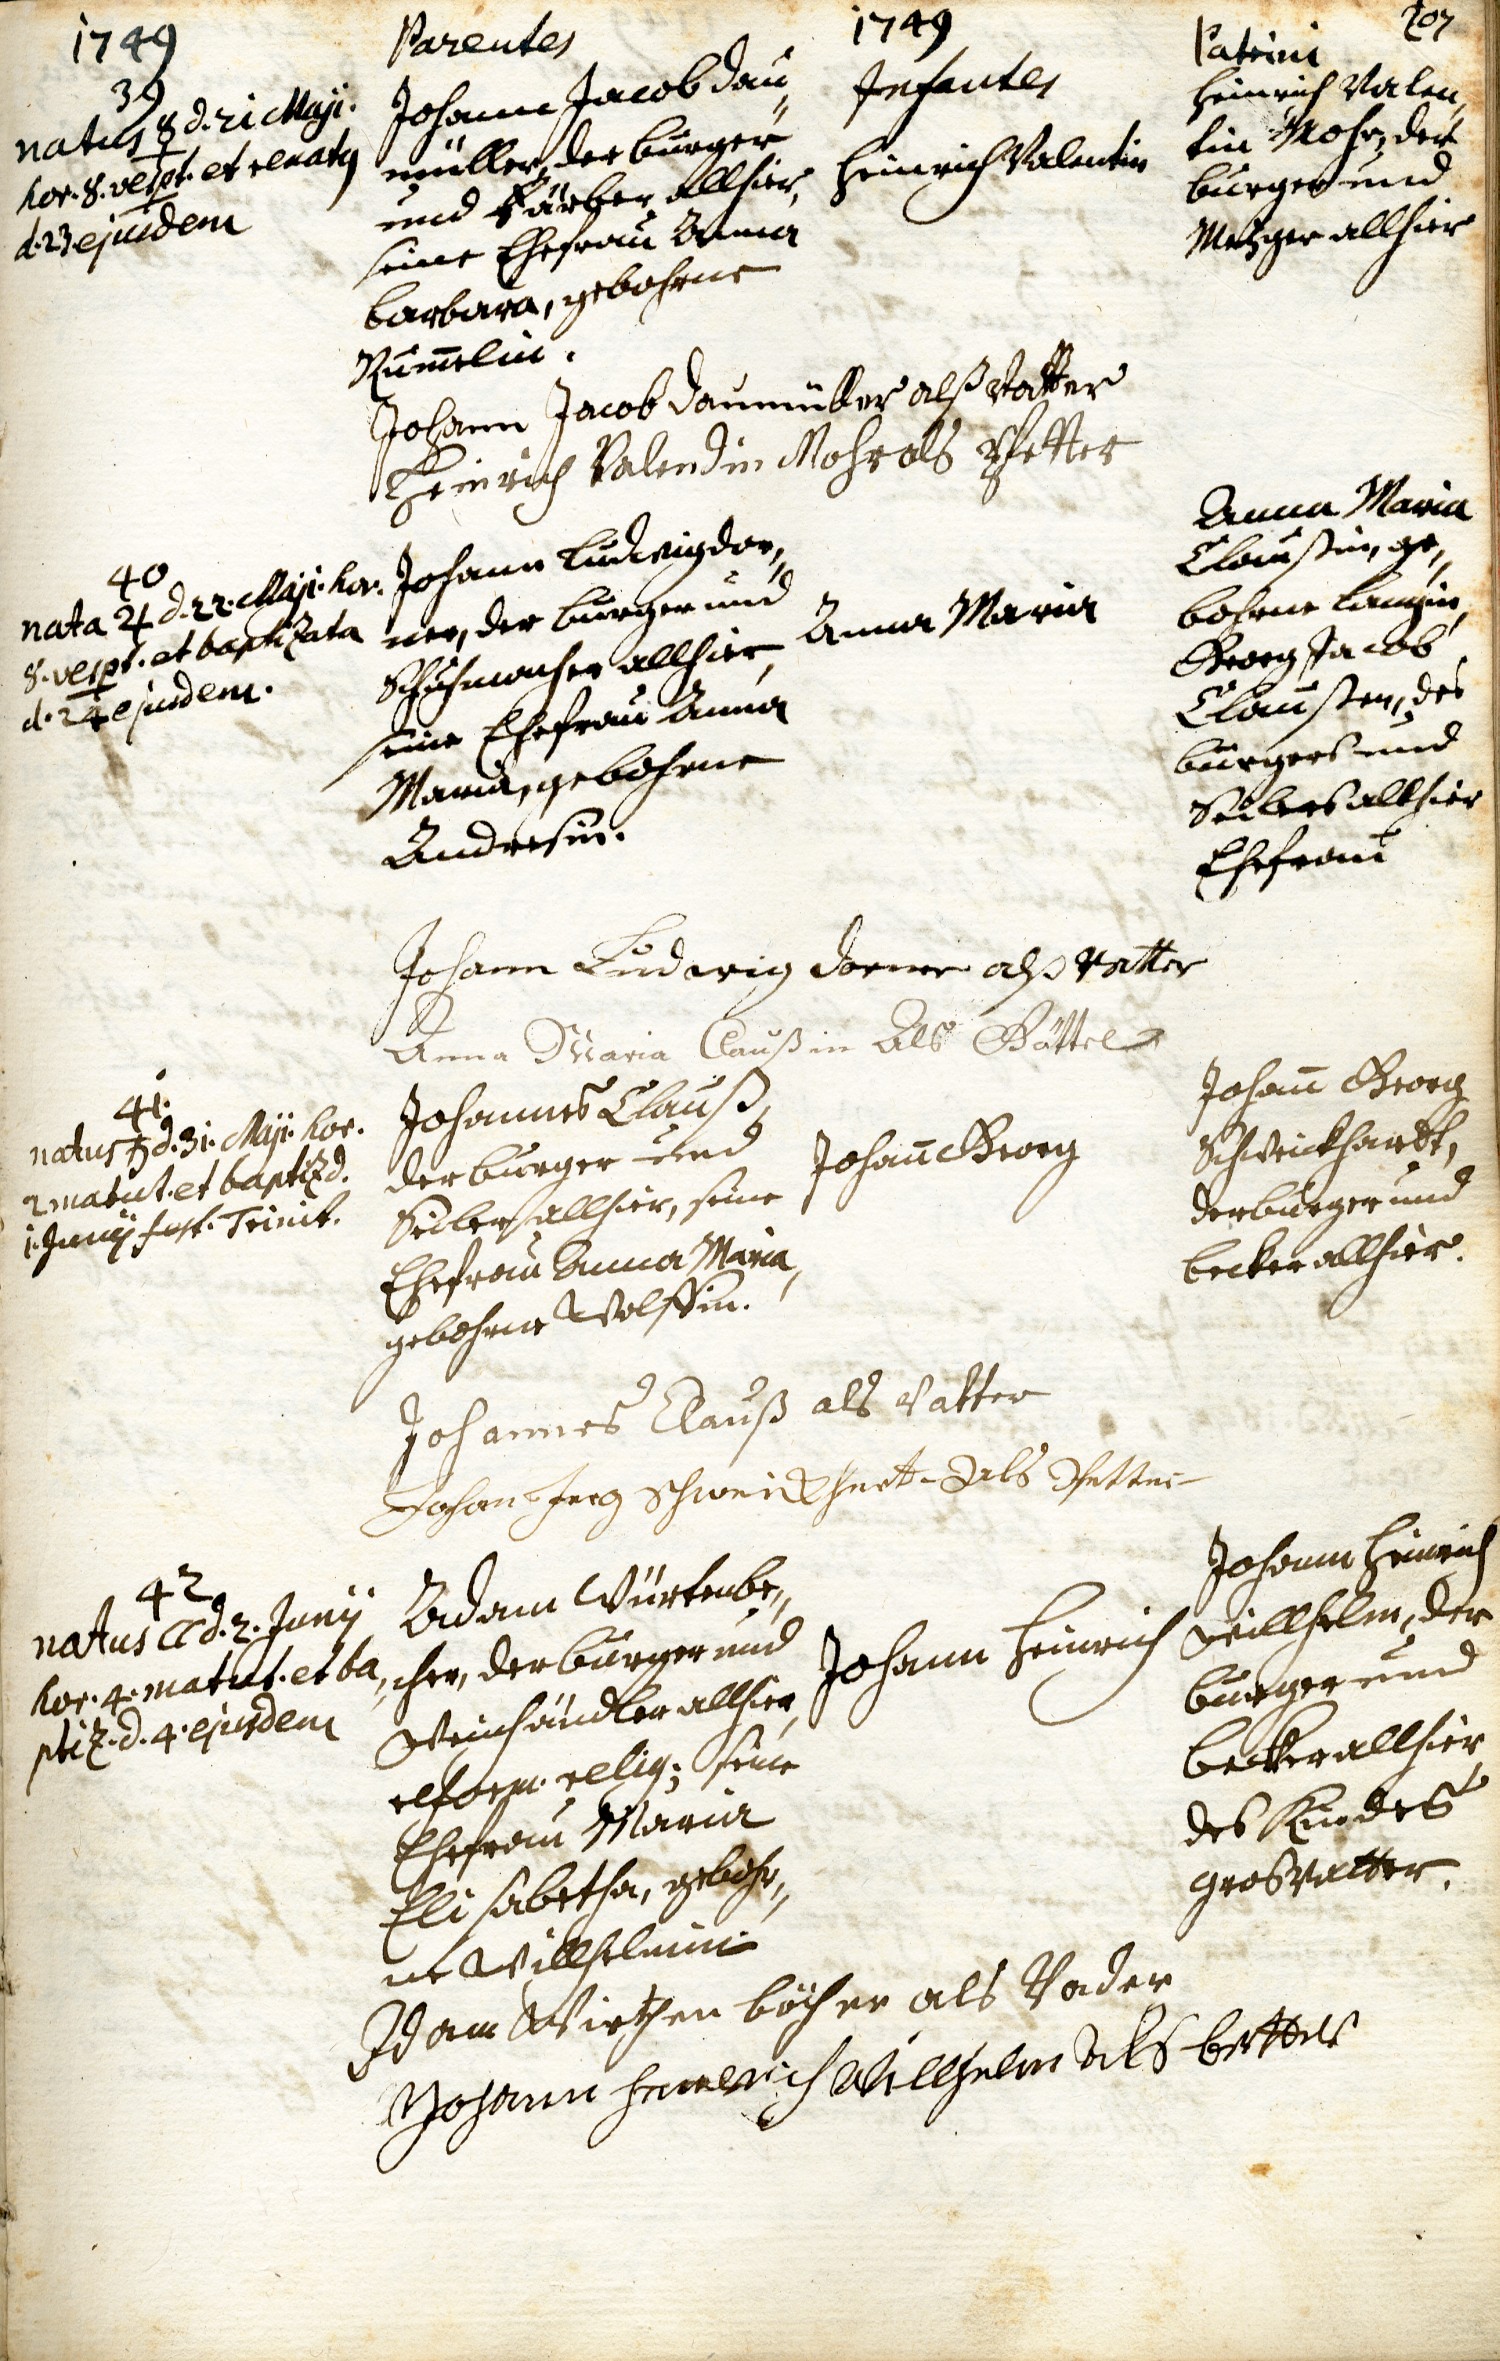 1749
Parentes
1749
Patrini
207
Infantes
39
natus ☿ d. 21 Maji.
hor. 8. vespt. et renatq
d. 23 ejusdem
Johann Jacob Dau„
müller, der burger
und Färber allhier,
seine Ehefrau Anna
barbara, gebohrne
Rum̄elin.
Heinrich Valentin
Heinrich Valen„
tin Mohr, der
burger und
Metzger allhier
Johann Jacob Daumüller alß Vatter
Heinrich Valendin Mohr als Pfetter
40
nata ♃ d. 22. Maji. hor.
8. vespt. et baptizata
d. 24 ejusdem.
Johann Ludwig Dor„
ner, der burger und
Schuhmacher allhier,
seine Ehefrau Anna
Maria, gebohrne
Andresin.
Anna Maria
Anna Maria
Claußin, ge„
bohrne Langin,
Georg Jacob
Claußen, des
burgers und
Seilers allhier
Ehefrau
Johann Ludwig Dorner alß Vatter
Anna Maria Claußin Als Göttel
41.
natus ♄ d. 31. Maji. hor.
2 matut. et baptiz d.
1. Junij fest. Trinit.
Johannes Clauß,
der burger und
Seiler allhier, seine
Ehefrau Anna Maria,
gebohrne Wolffin.
Johan̄ Georg
Johan̄ Georg
Schweickhardt,
der burger und
becker allhier.
Johannes Clauß als Vatter
Johan Jerg Schweickhert Als Pfetter
42
natus ☾ d. 2. Junij
hor. 4. matut. et ba„
ptiz. d. 4. ejusdem
Adam Würtenbe„
cher, der burger und
Weinhändler allhier,
reform. relig; seine
Ehefrau Maria
Elisabetha, gebohr„
ne Willhelmin
Johann Heinrich
Johann Heinrich
Willhelm, der
burger und
becker allhier,
des Kindes
grosvatter.
Adam Wirthen böcher als Vader
Johann Heinrich Willhelm Als better